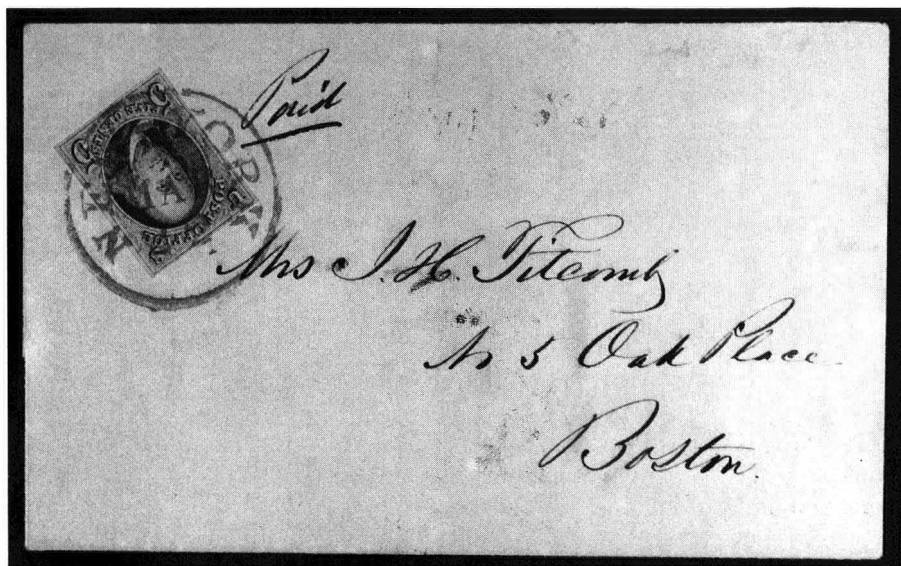 Paid
NEW YORK
Mrs J. H. Titcomb
No 5 Oak Place
Boston.